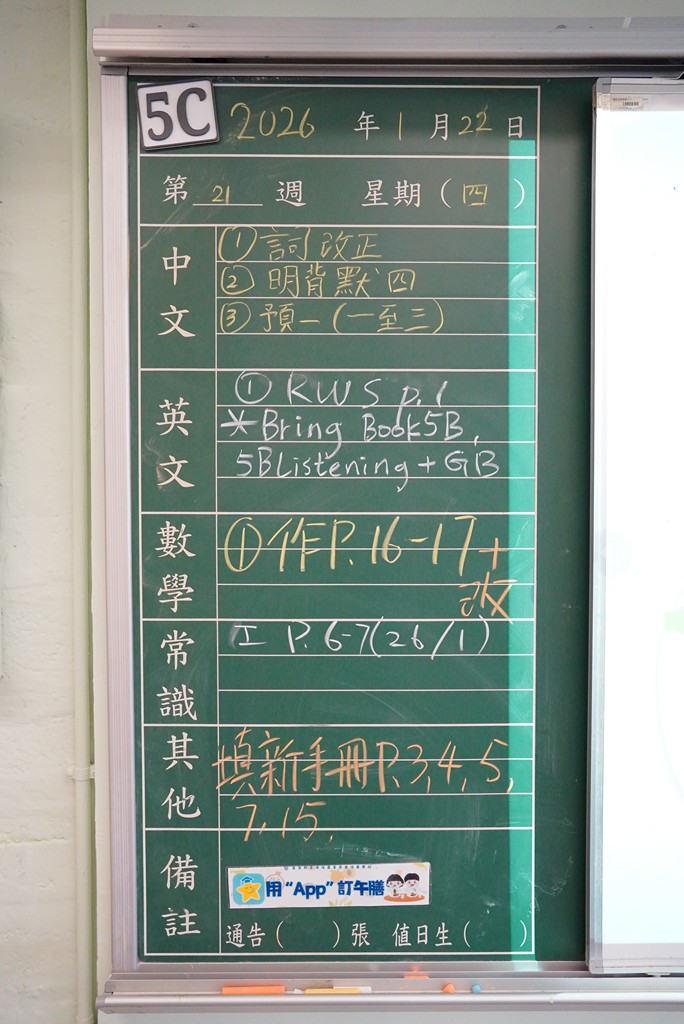 5C
2026 年 1 月 22 日
第 21 週 星期(四)
中文
① 詞改正
② 明背默四
③ 預一(一至三)
英文
① RWS p.1
*Bring Book5B,
5BListening+GB
數學
① 作P.16-17+
改
常識
工 P.6-7(26/1)
其他
填新手冊P.3,4,5,
7,15,
備註
用“App”訂午膳
通告( )張 值日生( )